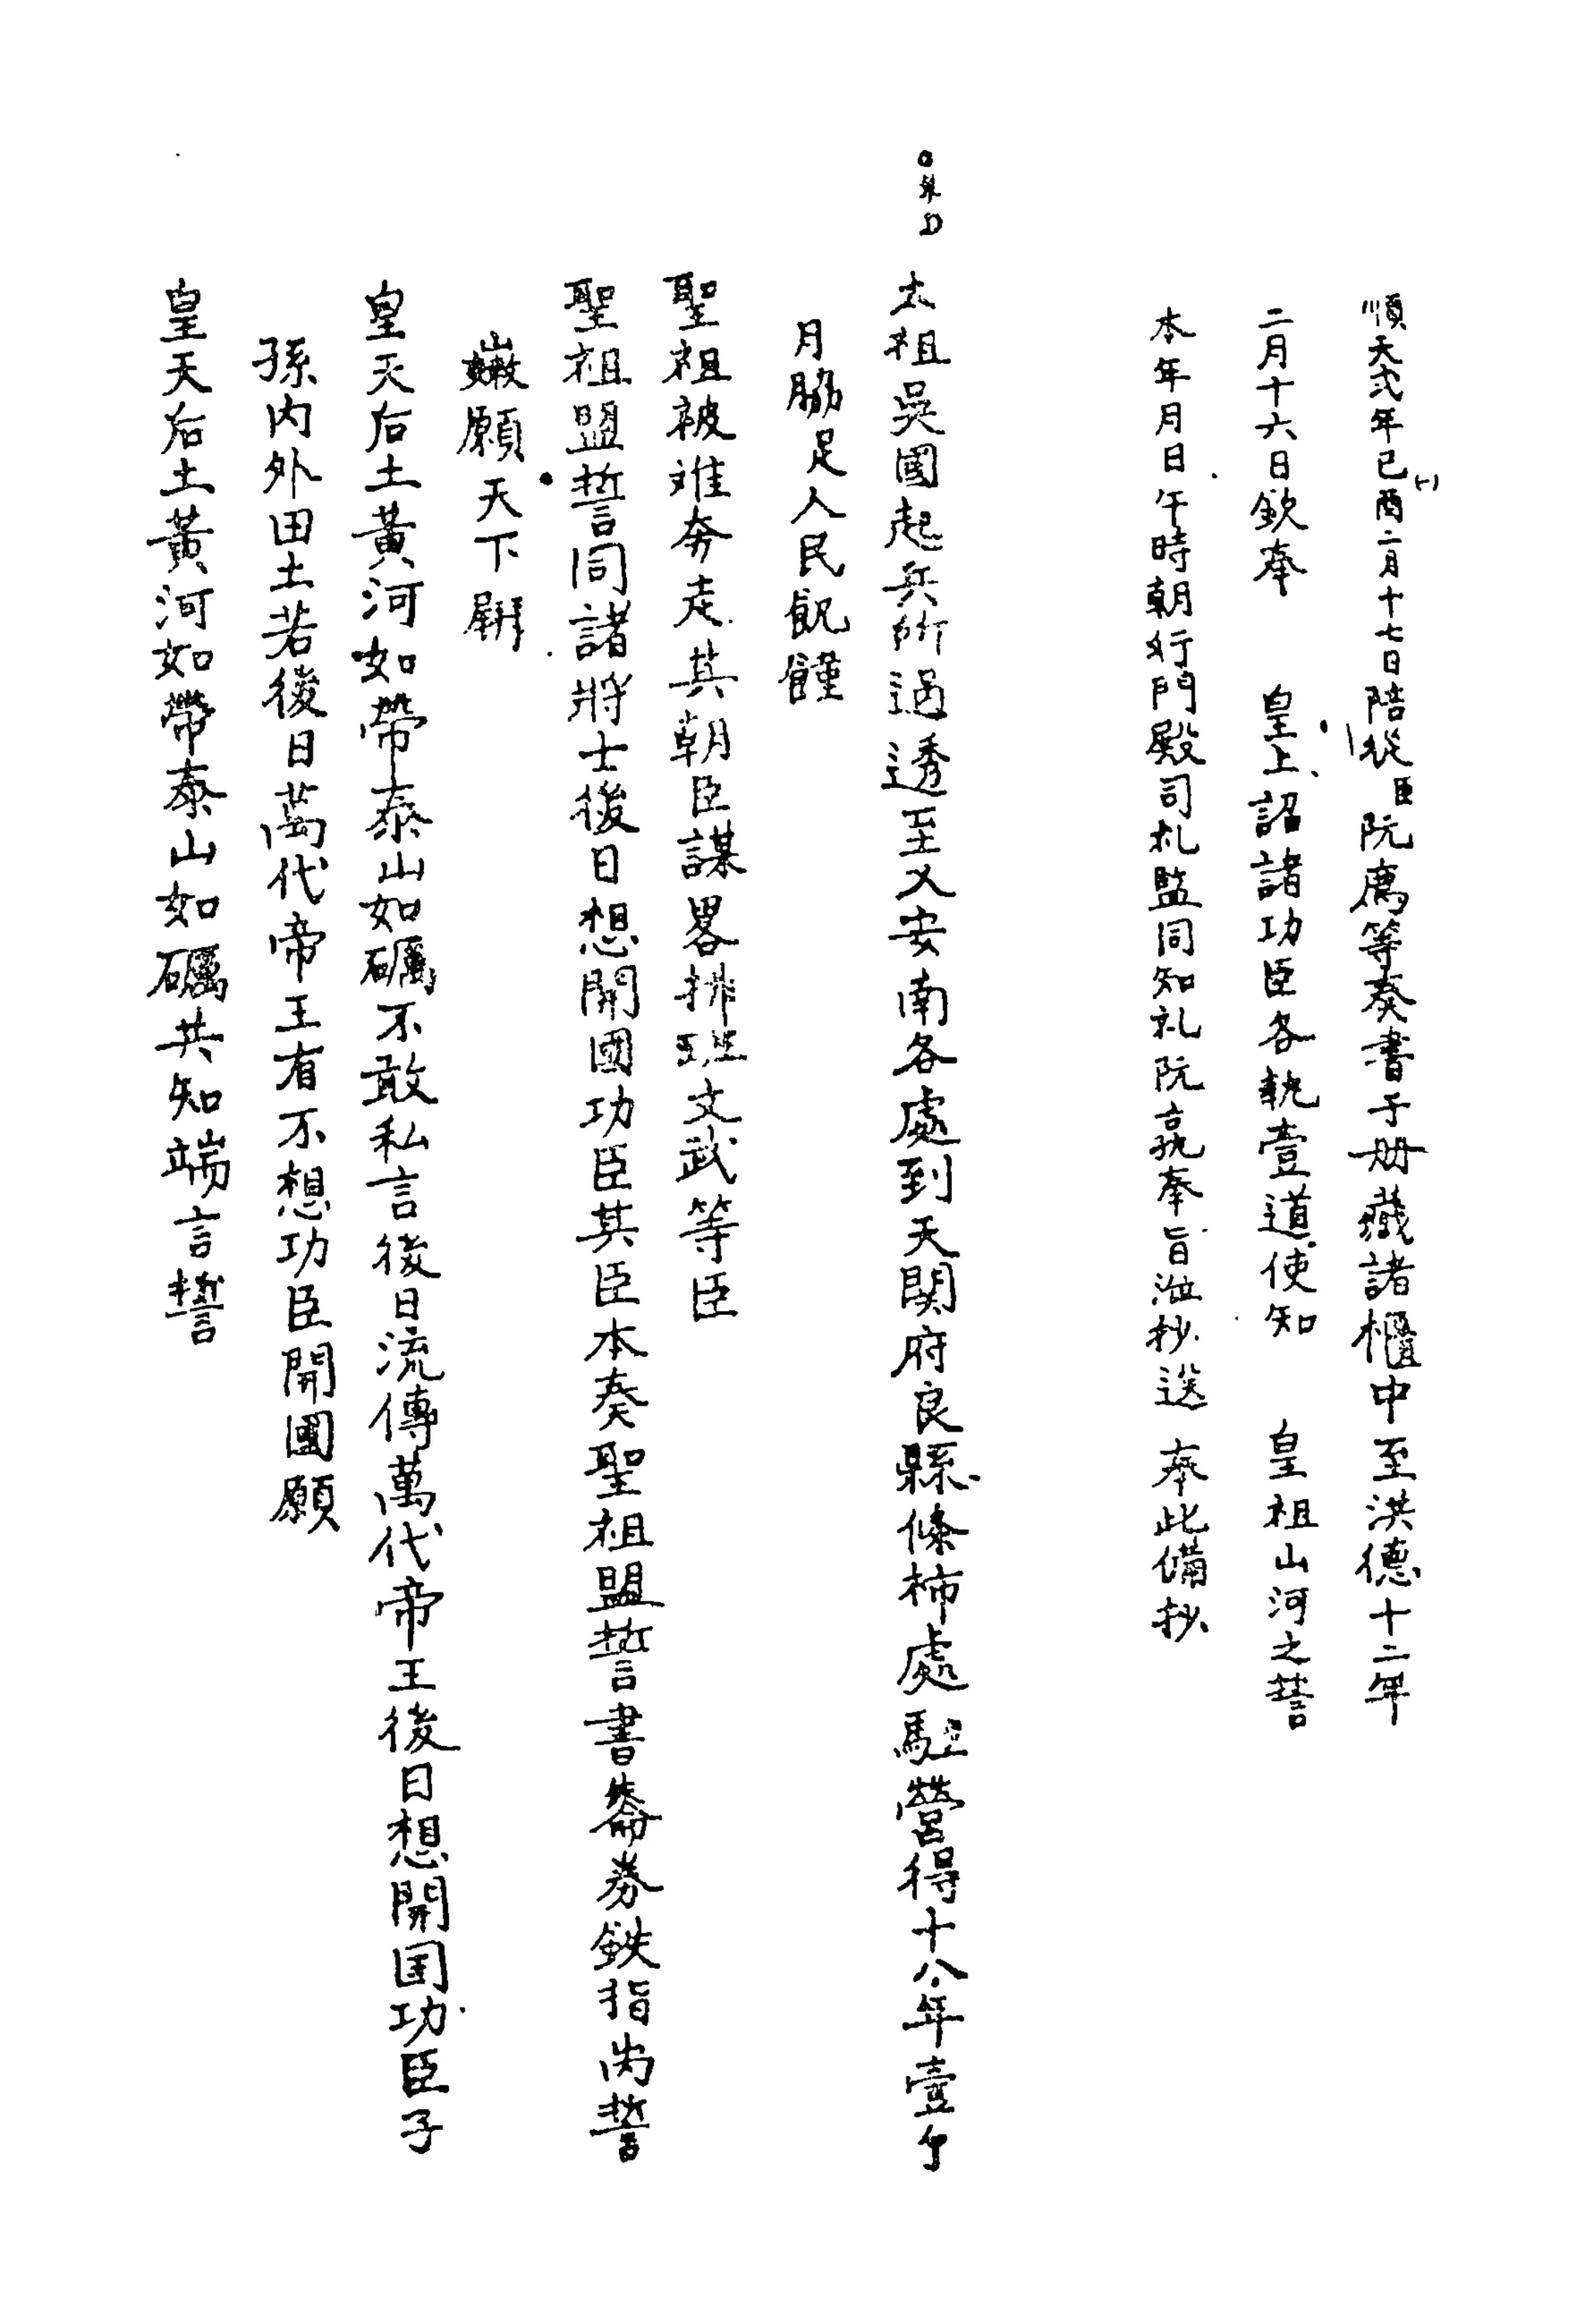 順天弍年己酉二月十七日陪從臣阮廌等奏書于册藏諸櫃中至洪德十二年
二月十六日欽奉 皇上詔諸功臣各執壹道使知 皇祖山河之誓
本年月日午時朝行門殿司札監同知礼阮 奉旨 抄送 奉此備抄
太祖吳國起兵所過透至乂安南各處到天関府良縣條柿處駐營得十八年壹
月脇足人民飢饉
聖祖被难奔走其朝臣謀畧排班文武等臣
聖祖盟誓同諸將士後日想開國功臣其臣本奏聖祖盟誓書 券鉄指 誓
願天下
皇天后土黃河如帶泰山如礪不敢私言後日流傳萬代帝王後日想開国功臣子
孫内外田土若後日萬代帝王有不想功臣開國願
皇天后土黃河如帶泰山如礪共知端言誓